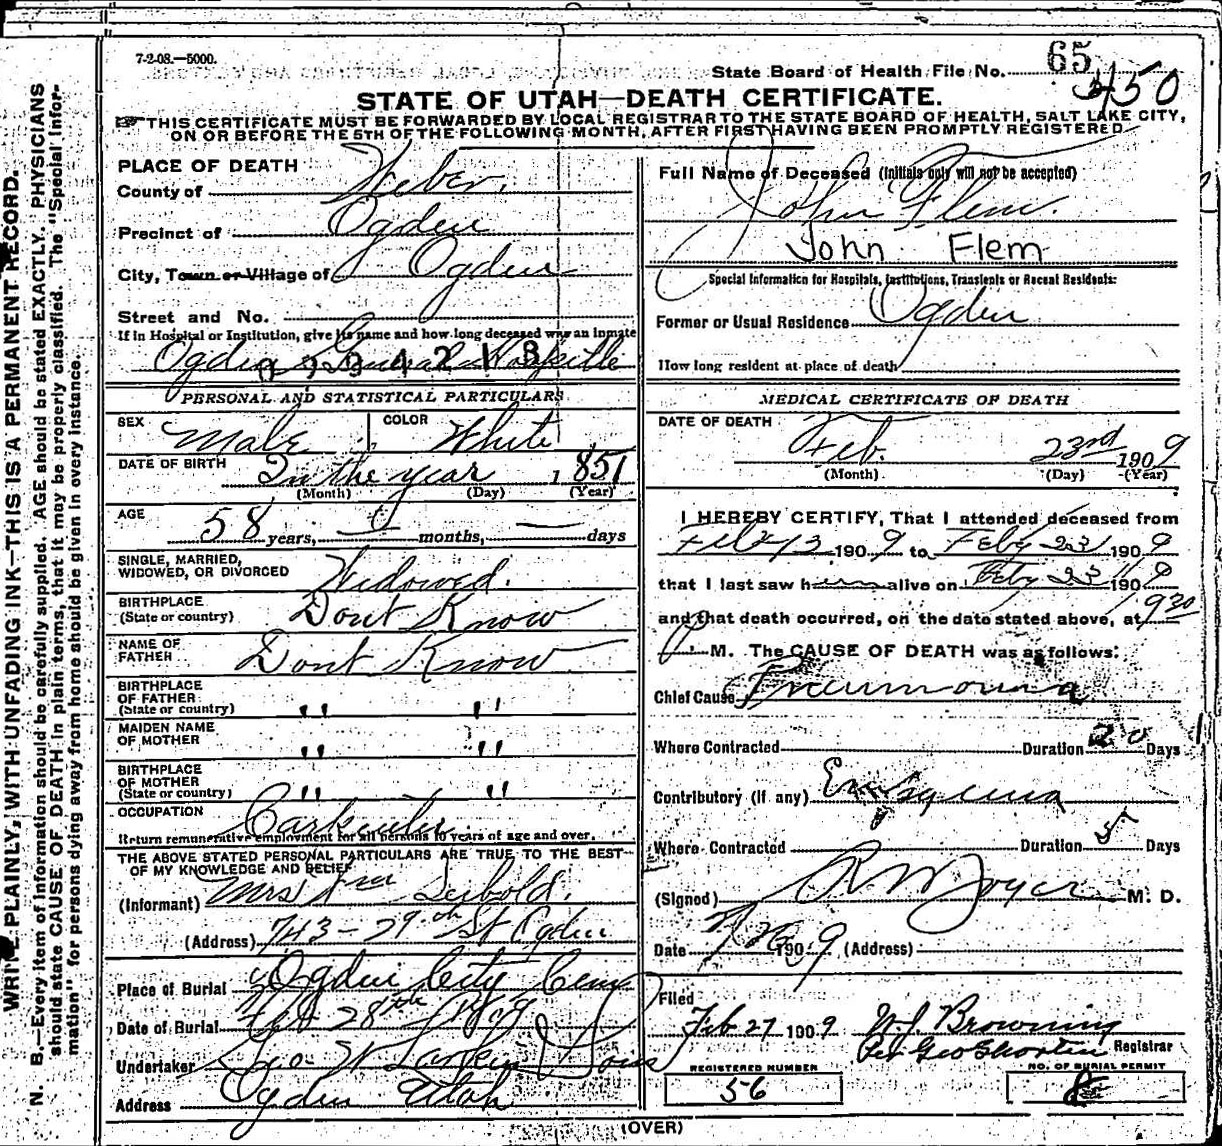 7-2-08.—5000.
State Board of Health File No. 65
450
STATE OF UTAH—DEATH CERTIFICATE.
THIS CERTIFICATE MUST BE FORWARDED BY LOCAL REGISTRAR TO THE STATE BOARD OF HEALTH, SALT LAKE CITY,
ON OR BEFORE THE 5TH OF THE FOLLOWING MONTH, AFTER FIRST HAVING BEEN PROMPTLY REGISTERED.
WRITE PLAINLY, WITH UNFADING INK—THIS IS A PERMANENT RECORD.
N. B.—Every item of information should be carefully supplied. AGE should be stated EXACTLY. PHYSICIANS
should state CAUSE OF DEATH in plain terms, that it may be properly classified. The "Special Infor-
mation" for persons dying away from home should be given in every instance.
PLACE OF DEATH
County of Weber.
Precinct of Ogden
City, Town or Village of Ogden
Street and No.
If in Hospital or Institution, give its name and how long deceased was an inmate
Ogden General Hospital
PERSONAL AND STATISTICAL PARTICULARS
SEX Male COLOR White
DATE OF BIRTH In the year 1851
(Month) (Day) (Year)
AGE 58 years, months, days
SINGLE, MARRIED,
WIDOWED, OR DIVORCED Widowed.
BIRTHPLACE
(State or country) Dont Know
NAME OF
FATHER Dont Know
BIRTHPLACE
OF FATHER
(State or country) " "
MAIDEN NAME
OF MOTHER " "
BIRTHPLACE
OF MOTHER
(State or country) " "
OCCUPATION Carpenter
Return remunerative employment for all persons 10 years of age and over.
THE ABOVE STATED PERSONAL PARTICULARS ARE TRUE TO THE BEST
OF MY KNOWLEDGE AND BELIEF
(Informant) Mrs Seibold.
(Address) 743-29th St Ogden
Place of Burial Ogden City Cem
Date of Burial Feb 28th 1909
Undertaker Geo W Larkin & Sons
Address Ogden Utah
Full Name of Deceased (Initials only will not be accepted)
John Flem.
John Flem
Special Information for Hospitals, Institutions, Transients or Recent Residents:
Former or Usual Residence Ogden
How long resident at place of death
MEDICAL CERTIFICATE OF DEATH
DATE OF DEATH
Feb. 23rd 1909
(Month) (Day) (Year)
I HEREBY CERTIFY, That I attended deceased from
1909 to Feby 23 1909
that I last saw him alive on Feby 23 1909
and that death occurred, on the date stated above, at 930
P. M. The CAUSE OF DEATH was as follows:
Chief Cause Pneumonia
Where Contracted Duration 20 Days
Contributory (If any) Empyema
Where Contracted Duration 5 Days
(Signed) M. D.
Date 1909 (Address)
Filed
Feb 27 1909 W.J. Browning
Per Geo Shorten Registrar
REGISTERED NUMBER
56
NO. OF BURIAL PERMIT
(OVER)